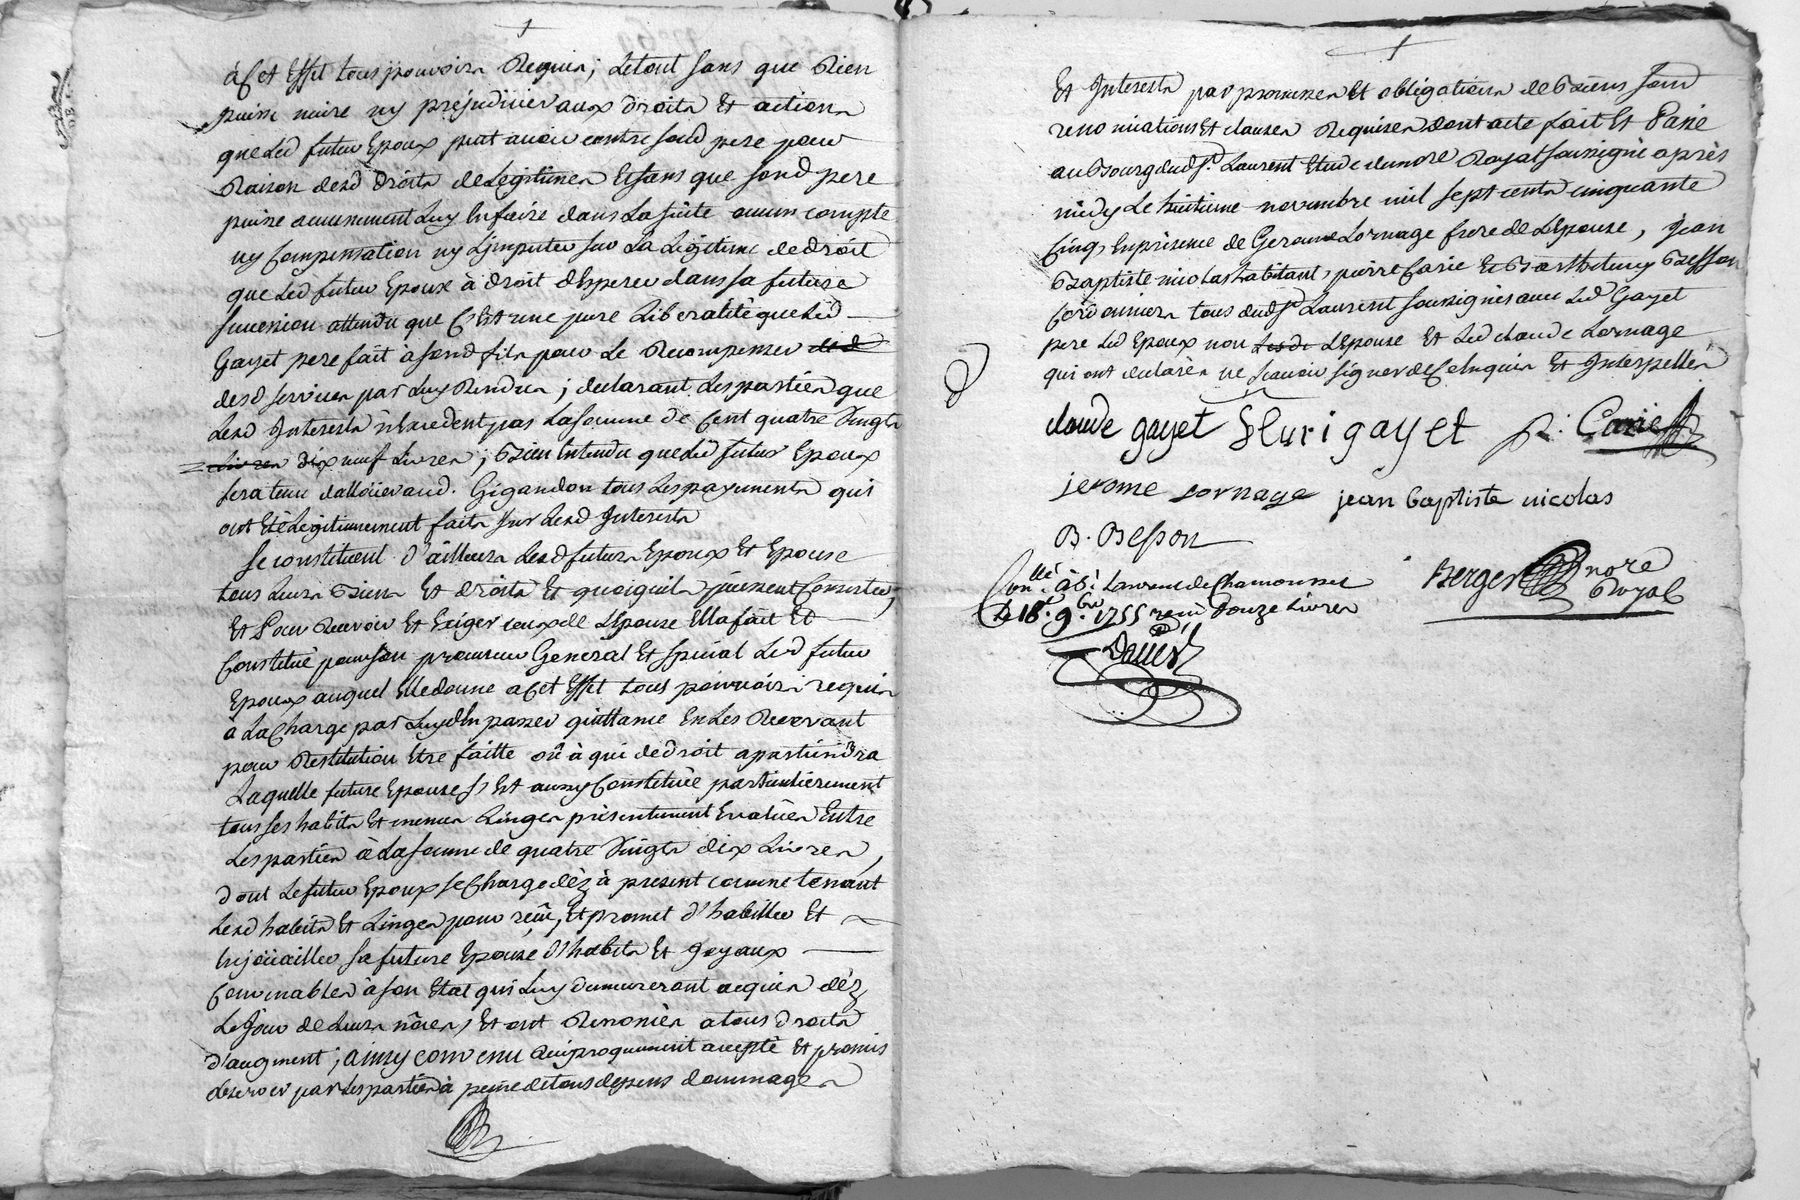 à Cet Effet tous pouvoirs Requis; Letout sans que Rien
puisse nuire ny préjudicier aux droits Et actions
que Led futur Epoux peut avoir contre sond pere pour
Raison desd droits de Legitimes Et sans que sond pere
puisse aucunement Luy En faire dans La suite aucun compte
ny Compensation ny L'imputer sur La Légitime de droit
que Led futur Epoux à droit d'Esperer dans sa future
succession attendu que C'Est une pure Liberalité que Led
Gayet pere fait à sond fils pour Le Recompenser
desd services par Luy Rendus; declarant Les parties que
Lesd Interests n'Excedent pas La somme de Cent quatre Vingts
dix neuf Livres; Bien Entendu que Led futur Epoux
sera tenu d'alloüer aud. Gigandon tous Les payements qui
ont Eté Legitimement faits sur Lesd Interests
Se constituent d'ailleurs Lesd futurs Epoux Et Epouse
tous Leurs Biens Et droits Et quoiquils puissent Consister,
Et Pour Recevoir Et Exiger ceux de L'Epouse Elle a fait Et
Constitué pour son procureur General Et spécial Led futur
Epoux auquel Elle donne a Cet Effet tous pouvoirs requis
à La Charge par Luy d'En passer quittance En Les Recevant
pour Restitution Etre faitte où à qui de droit apartiendra
Laquelle future Epouse s'Est aussy Constituée particulièrement
tous ses habits Et menus Linges présentement Evalués Entre
Les parties à La somme de quatre Vingts dix Livres,
dont Le futur Epoux se Charge dèz à present comme tenant
Lesd habits Et Linges pour reçus, Et promet d'habiller Et
Enjoüailler sa future Epouse d'habits Et Joyaux
Convenables à son Etat qui Luy demeureront acquis dèz
Le Jour de Leurs nôces, Et ont Renoncés a tous droits
d'augment; ainsy convenu Reciproquement accepté Et promis
observer par Les parties à peine de tous depens dommages
Et Interests par promesses Et obligations de Biens soum
renonciations Et clauses Requises dont acte fait Et Passé
au Bourg dud St. Laurent Etude du nore Royal soussigné après
midy Le huitieme novembre mil sept cents cinquante
Cinq, En présence de Gerome Lornage frere de L'Epouse, Jean
Baptiste nicolas habitant, pierre Carie Et Barthelemy Besson
Cordonniers tous dud St Laurent soussignés avec Led Gayet
pere Led Epoux non L'Epouse Et Led claude Lornage
qui ont declarés ne scavoir signer de Ce Enquis Et Interpellés
claude gayet fleurigayet p. Carie
jerome Lornage jean baptiste nicolas
B. Besson
Conllé à St Laurent de Chamousset
Le 18e 9bre 1755 reçu Douze Livres
Berger nore Royal